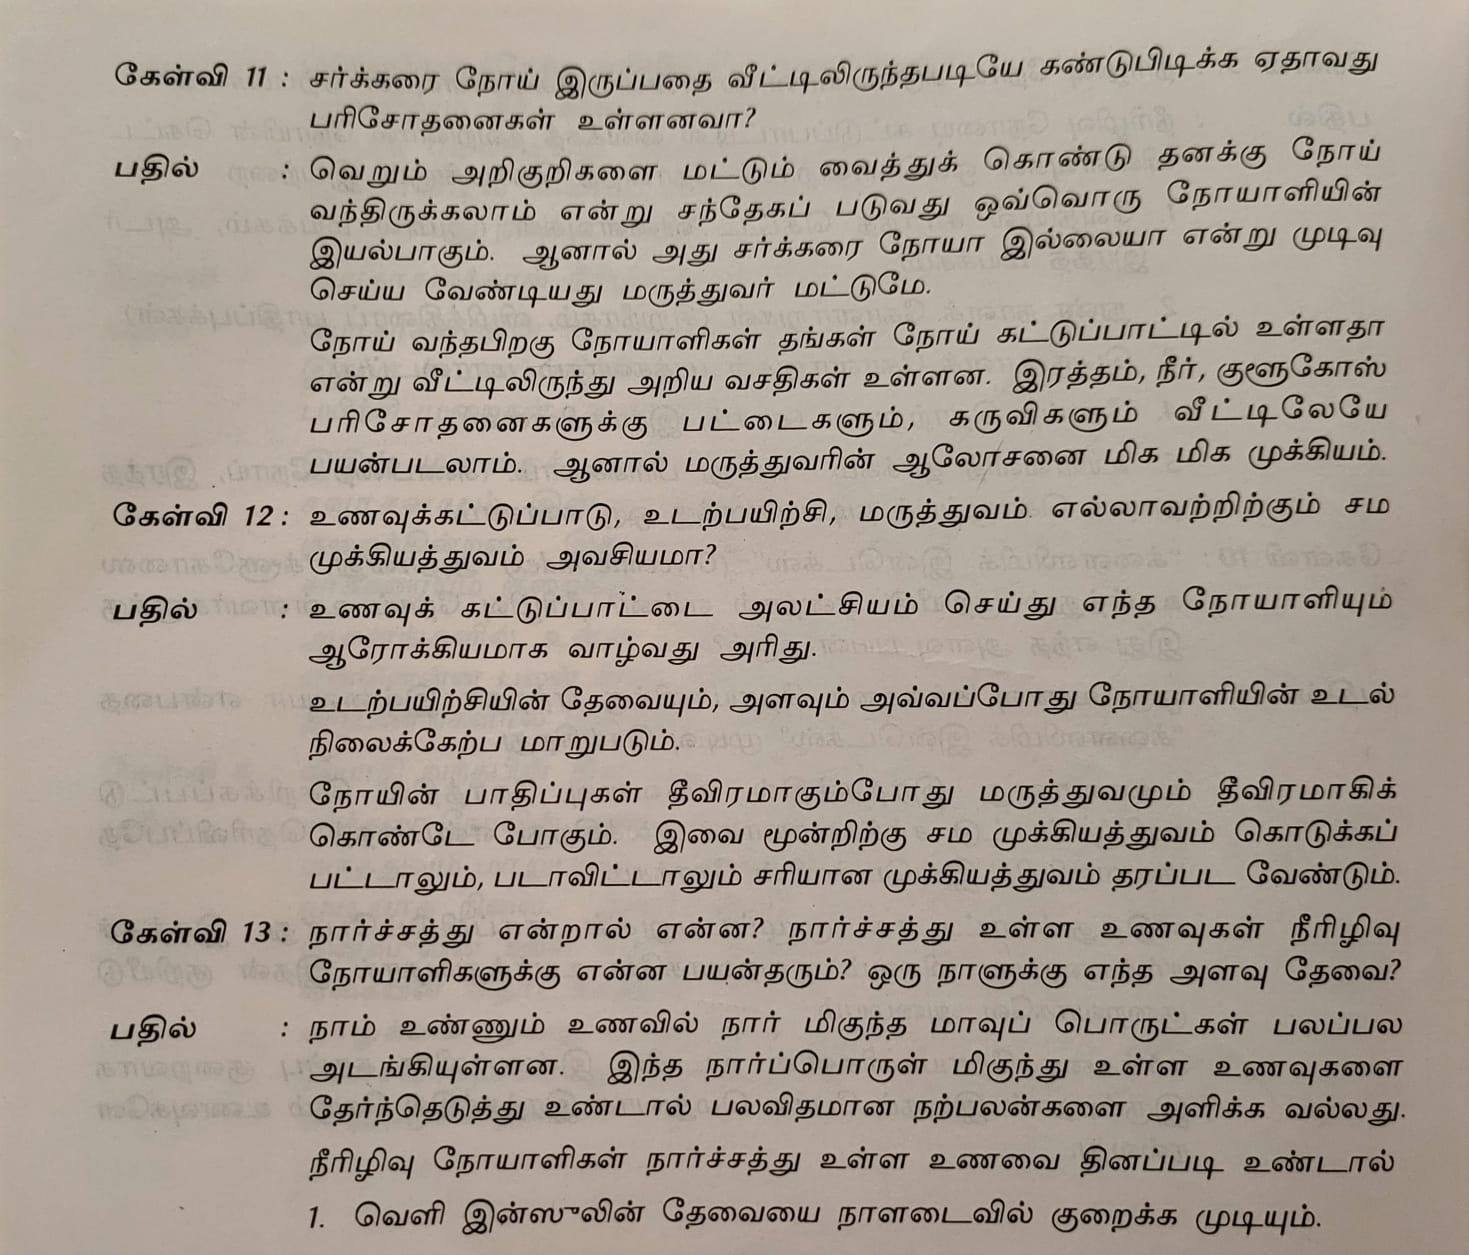 கேள்வி 11 : சர்க்கரை நோய் இருப்பதை வீட்டிலிருந்தபடியே கண்டுபிடிக்க ஏதாவது
பரிசோதனைகள் உள்ளனவா?
பதில் : வெறும் அறிகுறிகளை மட்டும் வைத்துக் கொண்டு தனக்கு நோய்
வந்திருக்கலாம் என்று சந்தேகப் படுவது ஒவ்வொரு நோயாளியின்
இயல்பாகும். ஆனால் அது சர்க்கரை நோயா இல்லையா என்று முடிவு
செய்ய வேண்டியது மருத்துவர் மட்டுமே.
நோய் வந்தபிறகு நோயாளிகள் தங்கள் நோய் கட்டுப்பாட்டில் உள்ளதா
என்று வீட்டிலிருந்து அறிய வசதிகள் உள்ளன. இரத்தம், நீர், குளூகோஸ்
பரிசோதனைகளுக்கு பட்டைகளும், கருவிகளும் வீட்டிலேயே
பயன்படலாம். ஆனால் மருத்துவரின் ஆலோசனை மிக மிக முக்கியம்.
கேள்வி 12 : உணவுக்கட்டுப்பாடு, உடற்பயிற்சி, மருத்துவம் எல்லாவற்றிற்கும் சம
முக்கியத்துவம் அவசியமா?
பதில் : உணவுக் கட்டுப்பாட்டை அலட்சியம் செய்து எந்த நோயாளியும்
ஆரோக்கியமாக வாழ்வது அரிது.
உடற்பயிற்சியின் தேவையும், அளவும் அவ்வப்போது நோயாளியின் உடல்
நிலைக்கேற்ப மாறுபடும்.
நோயின் பாதிப்புகள் தீவிரமாகும்போது மருத்துவமும் தீவிரமாகிக்
கொண்டே போகும். இவை மூன்றிற்கு சம முக்கியத்துவம் கொடுக்கப்
பட்டாலும், படாவிட்டாலும் சரியான முக்கியத்துவம் தரப்பட வேண்டும்.
கேள்வி 13 : நார்ச்சத்து என்றால் என்ன? நார்ச்சத்து உள்ள உணவுகள் நீரிழிவு
நோயாளிகளுக்கு என்ன பயன்தரும்? ஒரு நாளுக்கு எந்த அளவு தேவை?
பதில் : நாம் உண்ணும் உணவில் நார் மிகுந்த மாவுப் பொருட்கள் பலப்பல
அடங்கியுள்ளன. இந்த நார்ப்பொருள் மிகுந்து உள்ள உணவுகளை
தேர்ந்தெடுத்து உண்டால் பலவிதமான நற்பலன்களை அளிக்க வல்லது.
நீரிழிவு நோயாளிகள் நார்ச்சத்து உள்ள உணவை தினப்படி உண்டால்
1. வெளி இன்ஸுலின் தேவையை நாளடைவில் குறைக்க முடியும்.